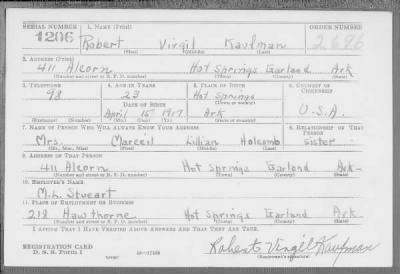 SERIAL NUMBER 1. NAME (Print) ORDER NUMBER
1206 Robert Virgil Kaufman 2696
(First) (Middle) (Last)
2. ADDRESS (Print)
411 Alcorn Hot Springs Garland Ark
(Number and street or R. F. D. number) (Town) (County) (State)
3. TELEPHONE 4. AGE IN YEARS 5. PLACE OF BIRTH 6. COUNTRY OF CITIZENSHIP
98 23 Hot Springs
DATE OF BIRTH (Town or county)
April 15 1917 Ark U.S.A.
(Exchange) (Number) (Mo.) (Day) (Yr.) (State or country)
7. NAME OF PERSON WHO WILL ALWAYS KNOW YOUR ADDRESS 8. RELATIONSHIP OF THAT PERSON
Mrs. Marceil Lillian Holcomb sister
(Mr., Mrs., Miss) (First) (Middle) (Last)
9. ADDRESS OF THAT PERSON
411 Alcorn Hot Springs Garland Ark
(Number and street or R. F. D. number) (Town) (County) (State)
10. EMPLOYER'S NAME
M.L. Stueart
11. PLACE OF EMPLOYMENT OR BUSINESS
218 Hawthorne Hot Springs Garland Ark
(Number and street or R. F. D. number) (Town) (County) (State)
I AFFIRM THAT I HAVE VERIFIED ABOVE ANSWERS AND THAT THEY ARE TRUE.
REGISTRATION CARD Robert Virgil Kaufman
D. S. S. Form 1 (Registrant's signature)